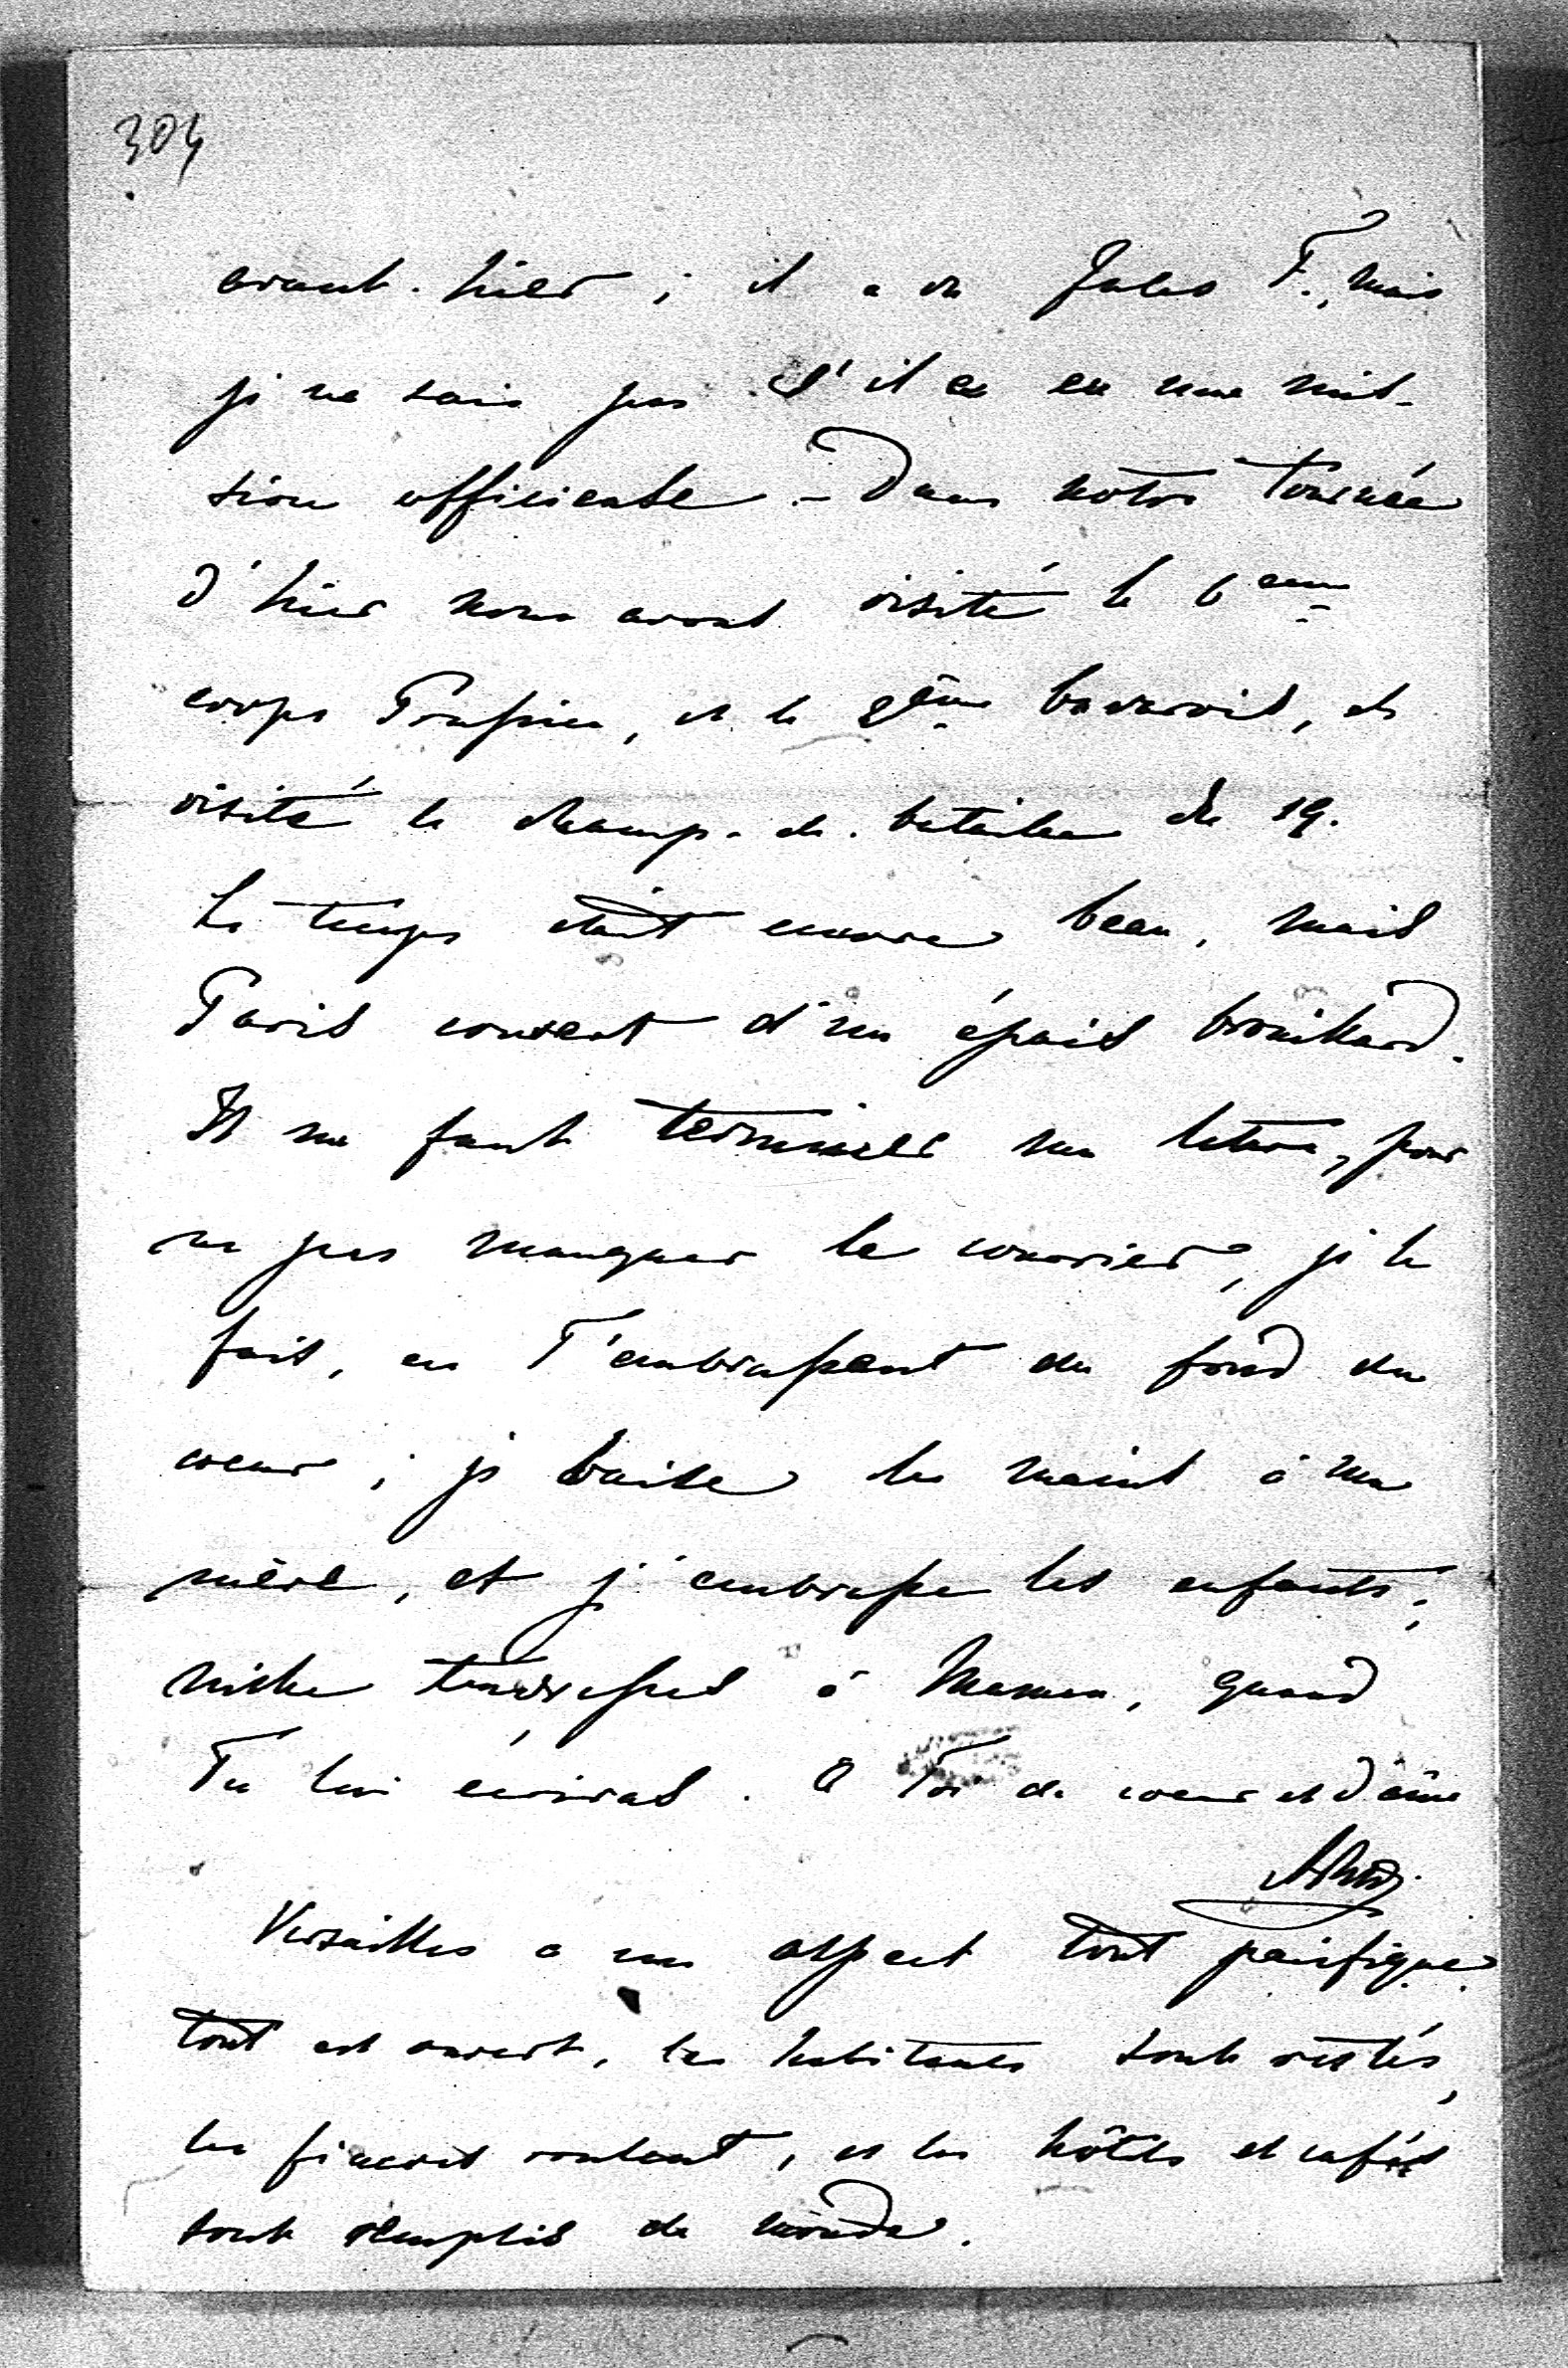 304
avant-hier ; il a vu Jules F., mais
je ne sais pas s'il a eu une mis-
sion officielle. - Dans notre tournée
d'hier nous avons visité le 6eme
corps Prussien, et le 2ème bavarois, et
visité le champ-de-bataille du 19.
Le temps était encore beau, mais
Paris couvert d'un épais brouillard.
Il me faut terminer ma lettre, pour
ne pas manquer le courrier, je le
fais, en T'embrassant du fond du
coeur ; je baise les mains à ma
mère, et j'embrasse les enfants ;
mille tendresses à Maman, quand
Tu lui écriras. À Toi de coeur et d'âme
Versailles a un aspect tout pacifique
tout est ouvert, les habitants sont restés,
les fiacres roulent, et les hôtels et cafés
sont remplis de monde.